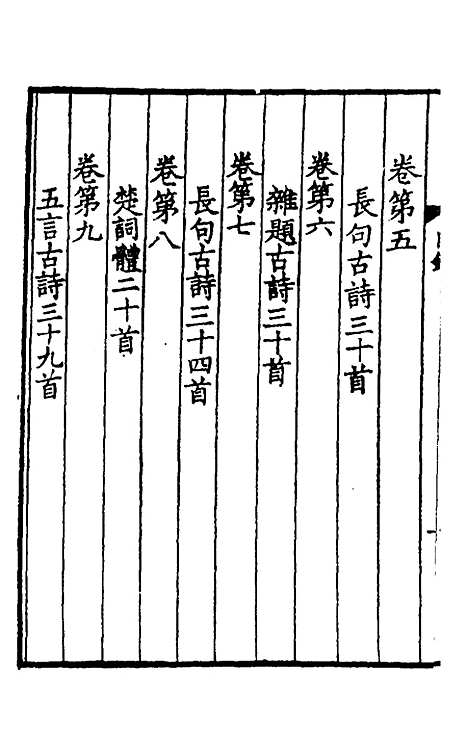 卷第五
長句古詩三十首
卷第六
雜題古詩三十首
卷第七
長句古詩三十四首
卷第八
楚詞體二十首
卷第九
五言古詩三十九首